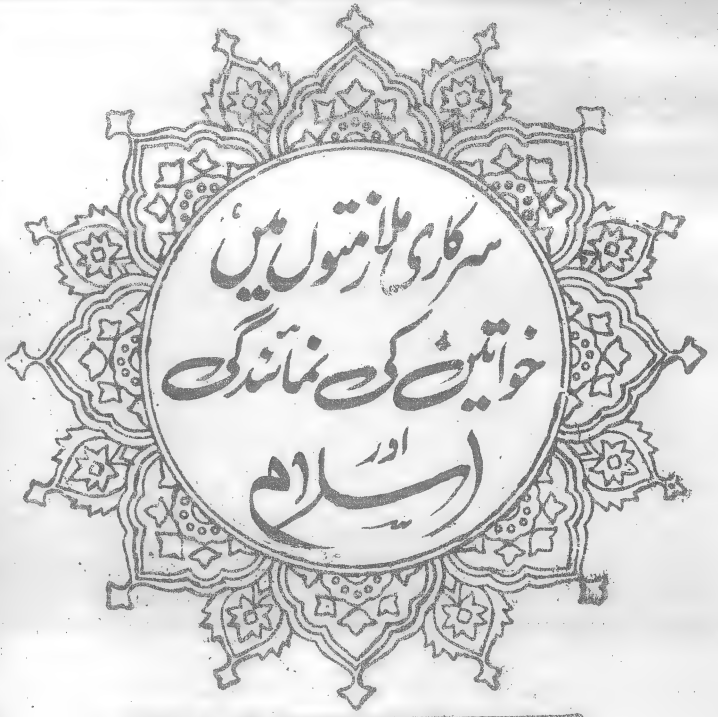 سرکاری ملازمتوں میں
خواتین کی نمائندگی
اور
اسلام